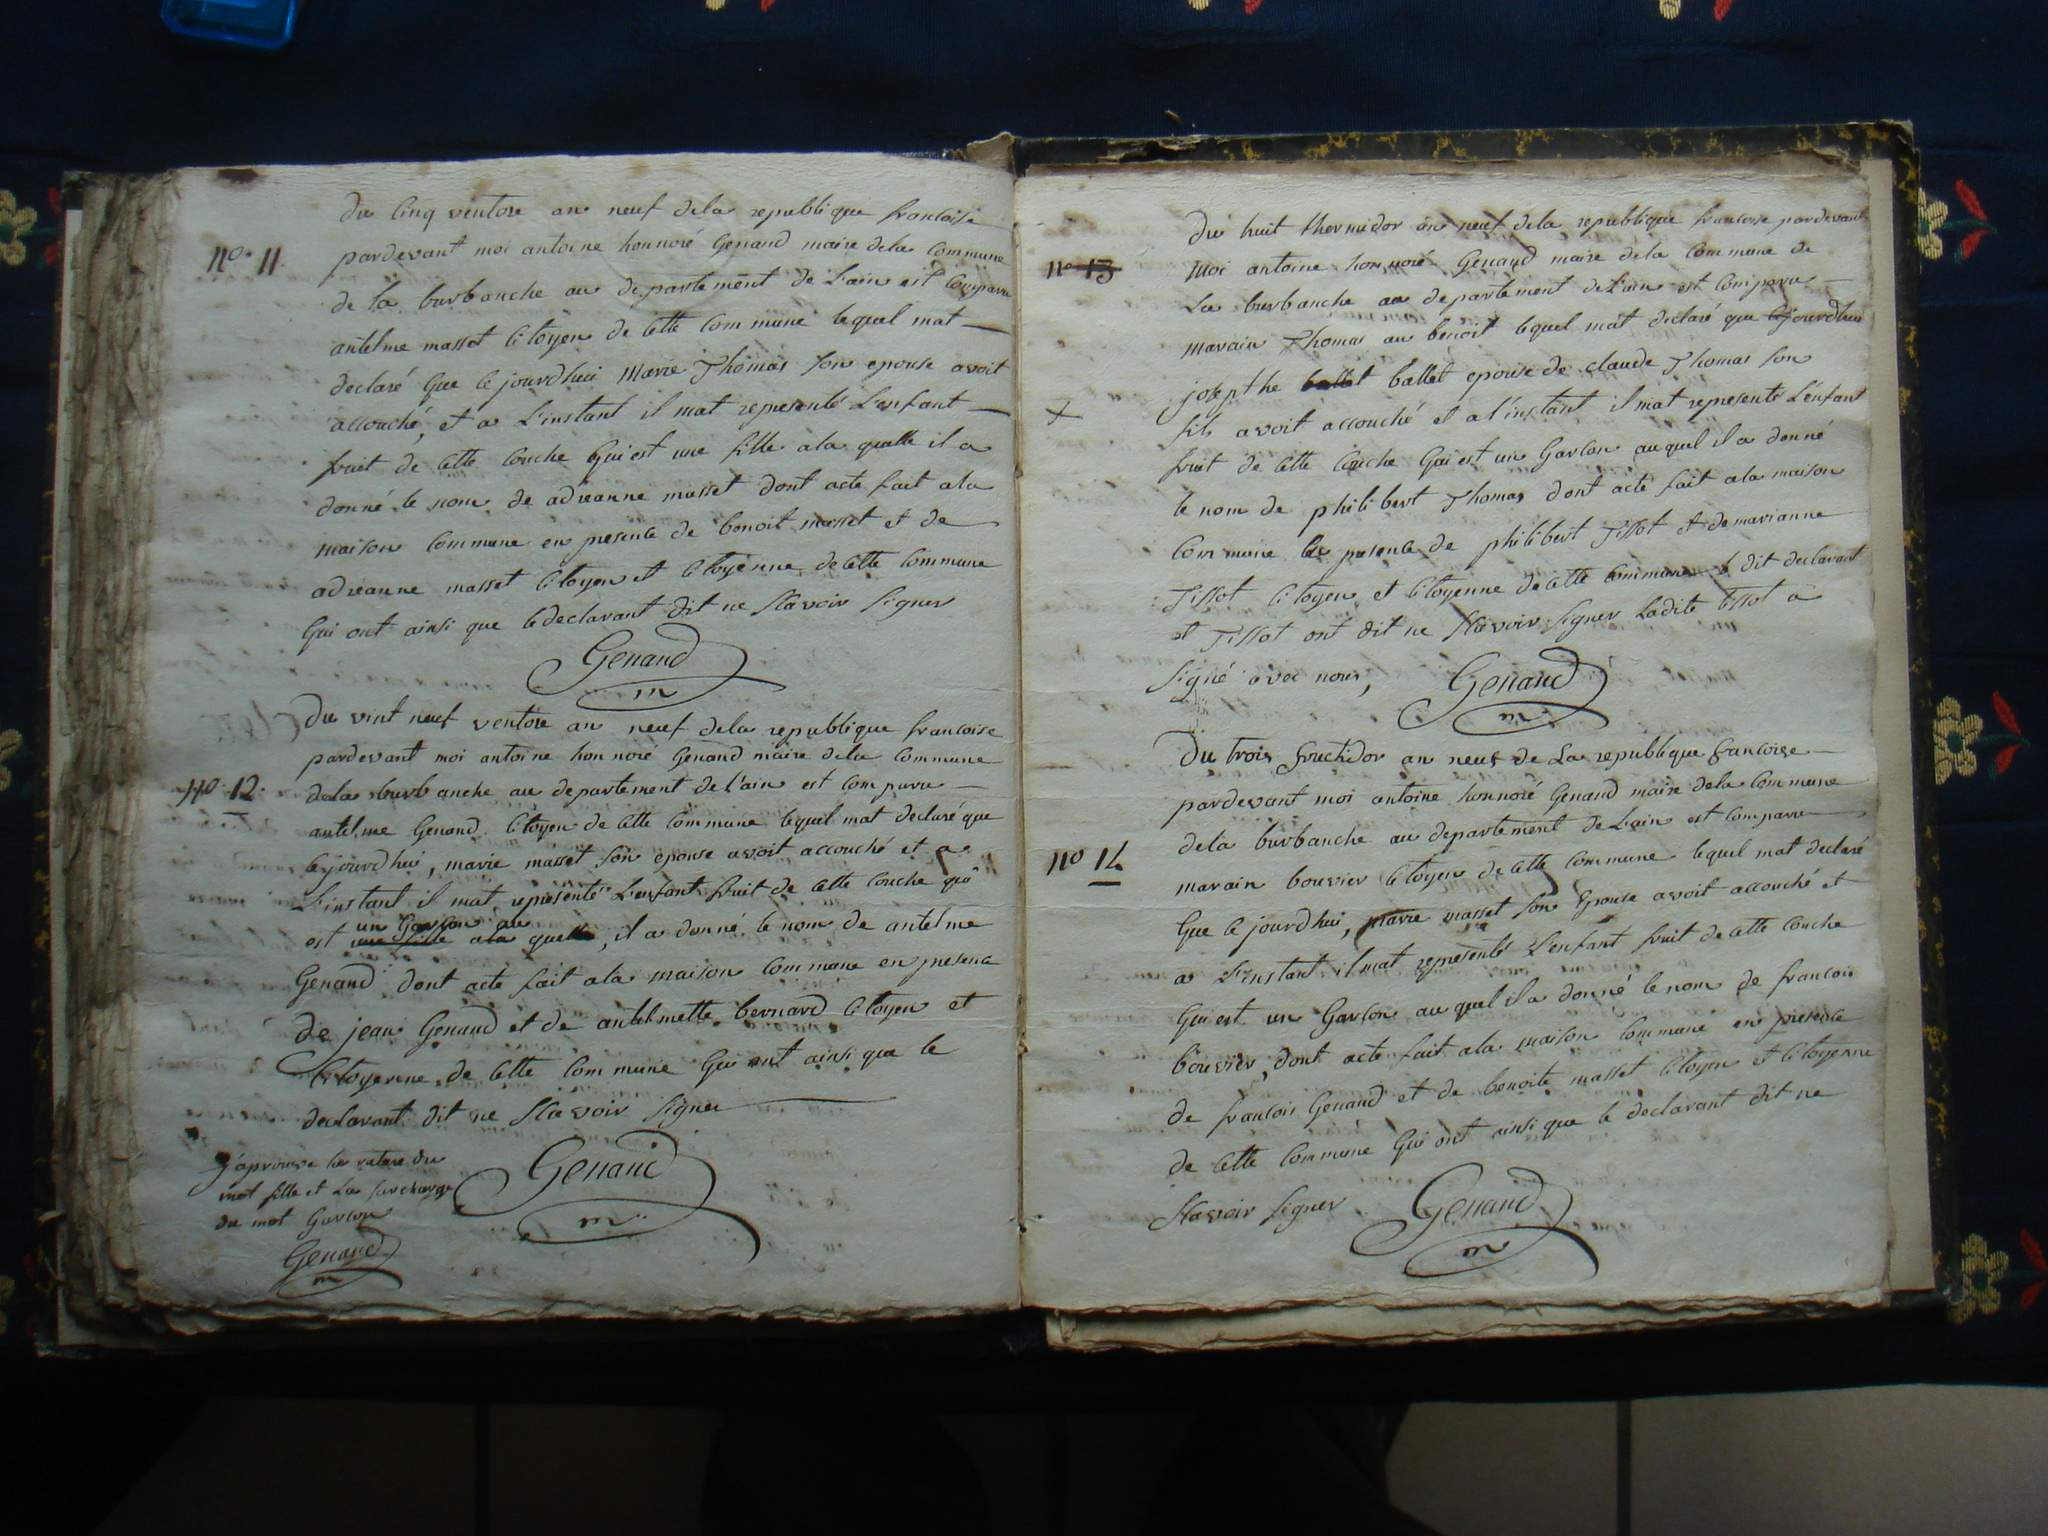 n.o 11.
du cinq ventose an neuf dela republique francoise
pardevant moi antoine honnoré Genand maire dela commune
de la burbanche au departement de L'ain est comparu
antelme masset citoyen de cette commune lequel mat
declaré que cejourdhui marie Thomas son epouse avoit
accouché, et a L'instant il mat representé L'enfant
fruit de cette couche qui est une fille ala quelle il a
donné le nom de adreanne masset dont acte fait ala
maison commune en presence de benoit masset et de
adreanne masset citoyen et citoyenne de cette commune
qui ont ainsi que le declarant dit ne scavoir signer
Genand
m
n.o 12.
Du vint neuf ventose an neuf dela republique francoise
pardevant moi antoine honnoré Genand maire dela commune
dela burbanche au departement de l'ain est comparu
antelme Genand citoyen de cette commune lequel mat declaré que
cejourdhui, marie masset son epouse avoit accouché et a
L'instant il mat representé L'enfant fruit de cette couche qui
un Garcon au
est une fille ala quelle, il a donné le nom de antelme
Genand dont acte fait ala maison commune en presence
de jean Genand et de anthelmette bernard citoyen et
citoyenne de cette commune qui ont ainsi que le
declarant dit ne scavoir signer
Genand
m
j'aprouve la rature du
mot fille et La surcharge
du mot Garcon
Genand
m
n.o 13
du huit thermidor an neuf dela republique francoise pardevant
moi antoine honnoré Genand maire dela commune de
La burbanche au departement de L'ain est comparu
marain Thomas au benoit lequel mat declaré que cejourdhui
josepthe ballet ballet epouse de claude Thomas son
fils avoit accouché et a l'instant il mat representé L'enfant
fruit de cette couche qui est un Garcon auquel il a donné
le nom de philibert Thomas dont acte fait ala maison
commune en presence de philibert Tissot et de marianne
Tissot citoyen et citoyenne de cette commune le dit declarant
et Tissot ont dit ne scavoir signer Ladite tissot a
signé avec nous,
Genand
m
n.o 14
Du trois fructidor an neuf de La republique francoise
pardevant moi antoine honnoré Genand maire dela commune
dela burbanche au departement de L'ain est comparu
marain bouvier citoyen de cette commune lequel mat declaré
que cejourdhui, marie masset son epouse avoit accouché et
a L'instant il mat representé L'enfant fruit de cette couche
qui est un Garcon auquel il a donné le nom de francois
bouvier, dont acte fait ala maison commune en presence
de francois Genand et de benoite masset citoyen et citoyenne
de cette commune qui ont ainsi que le declarant dit ne
scavoir signer
Genand
m